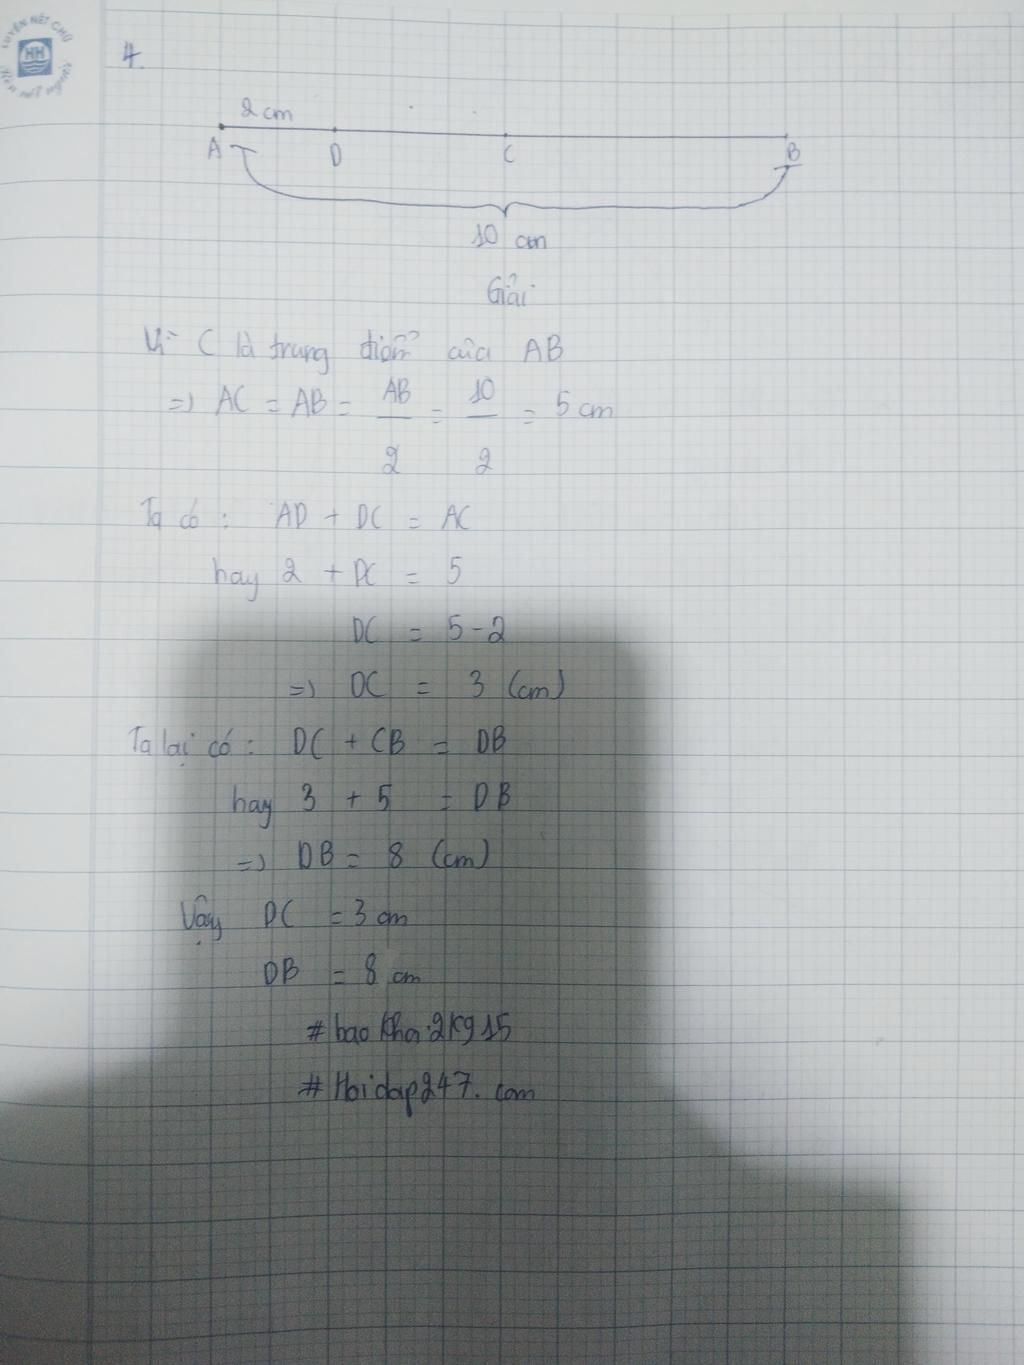 LUYỆN NÉT CHỮ
HH
Rèn nết người
4.
2 cm
A D C B
10 cm
Giải
Vì C là trung điểm của AB
=> AC = AB = AB/2 = 10/2 = 5 cm
Ta có : AD + DC = AC
hay 2 + DC = 5
DC = 5 - 2
=> DC = 3 (cm)
Ta lại có : DC + CB = DB
hay 3 + 5 = DB
=> DB = 8 (cm)
Vậy DC = 3 cm
DB = 8 cm
#baokhoi2k915
#Hoidap247.com